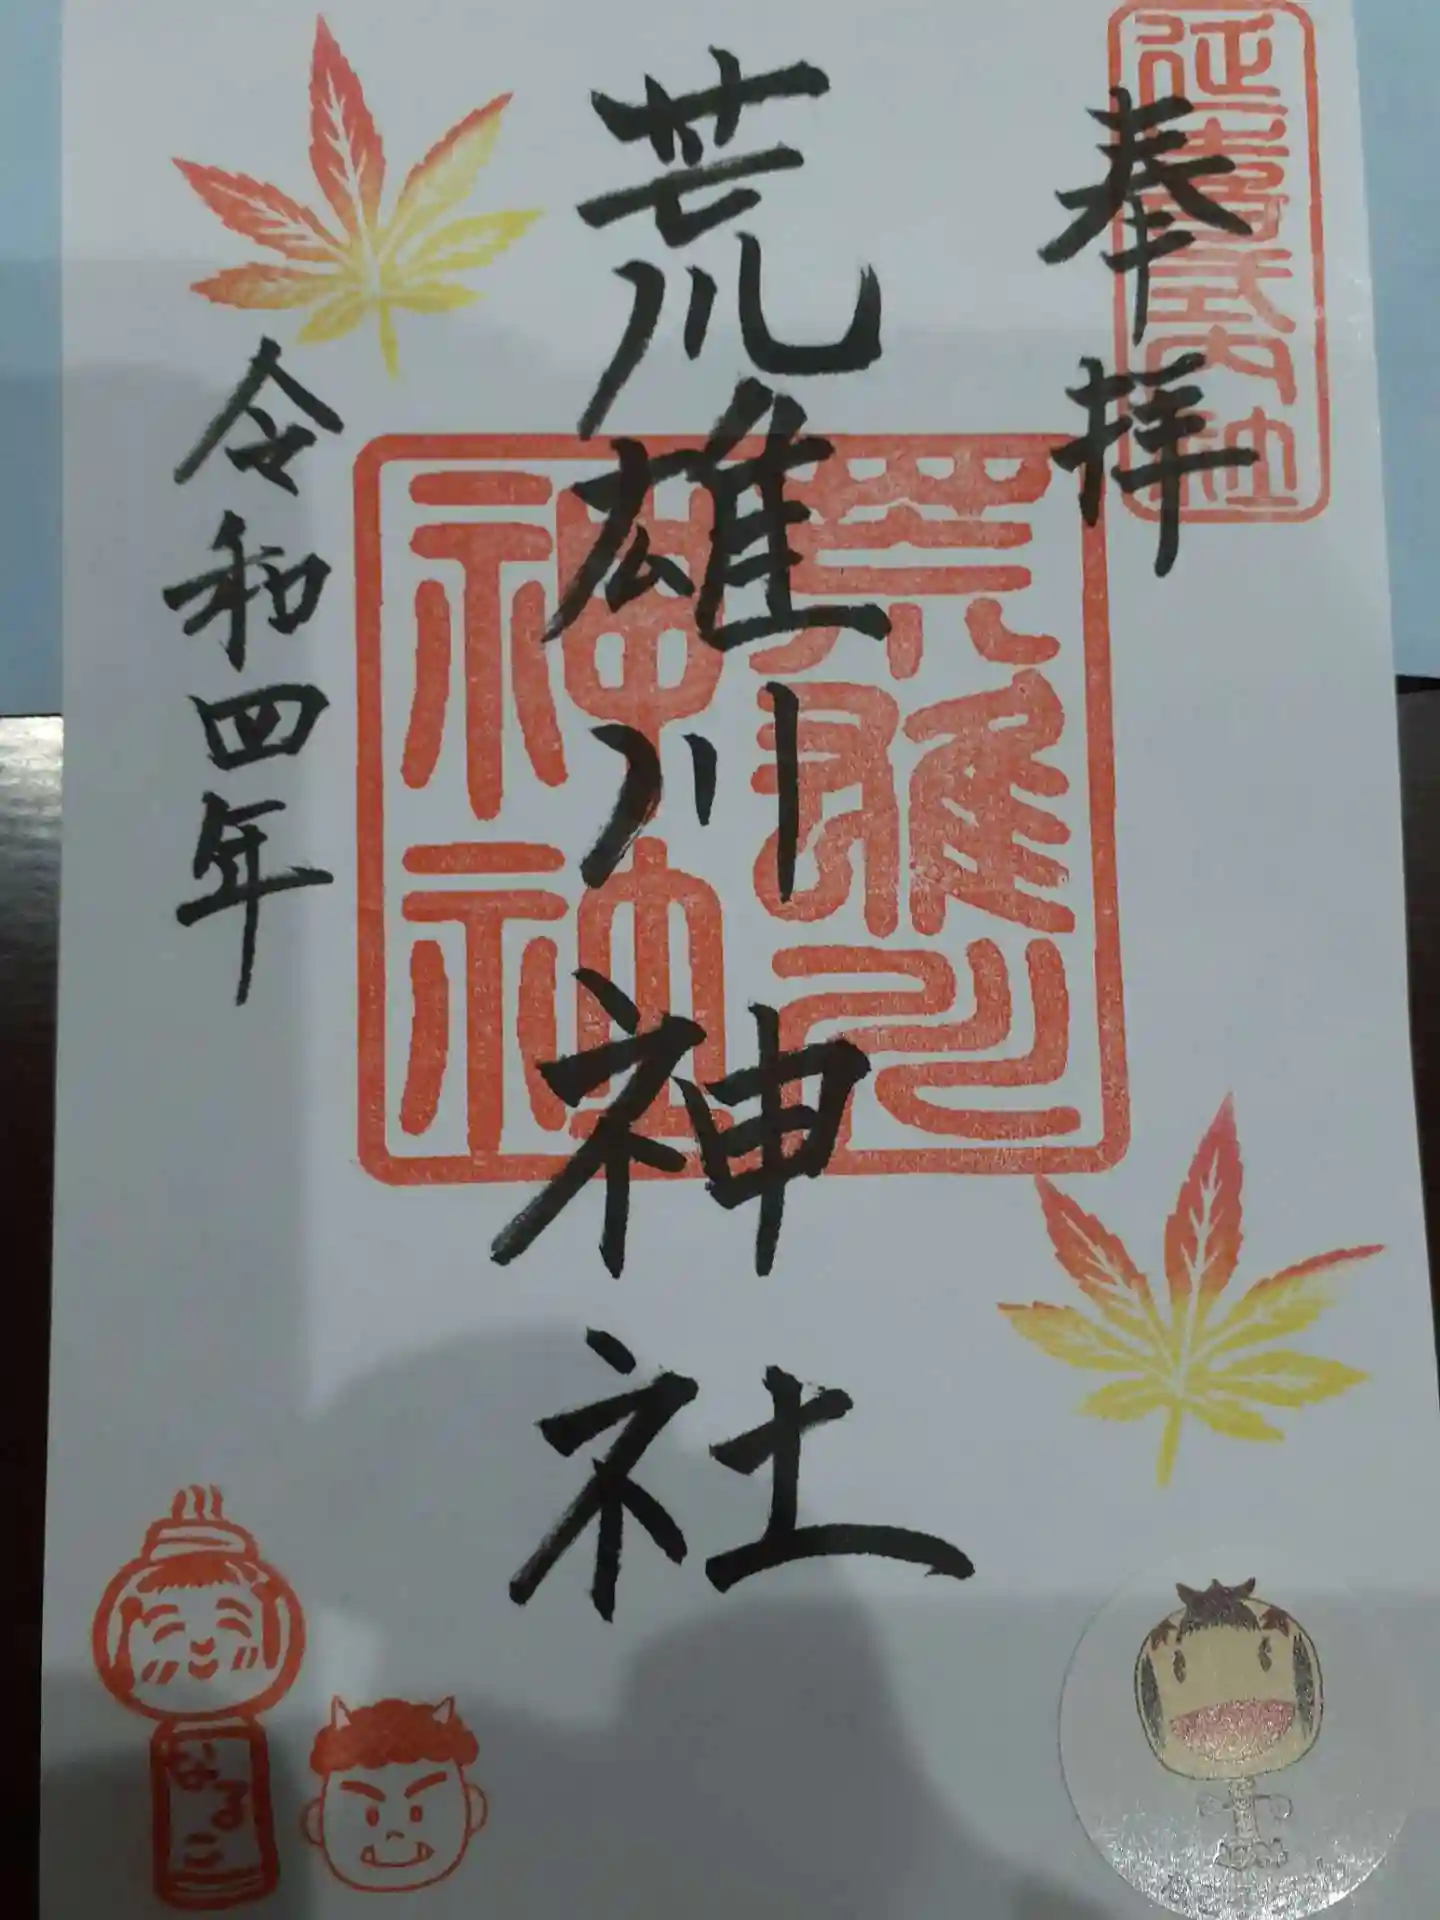 延喜式内社
奉拝
荒雄川神社
荒雄川
神社
令和四年
なるこ